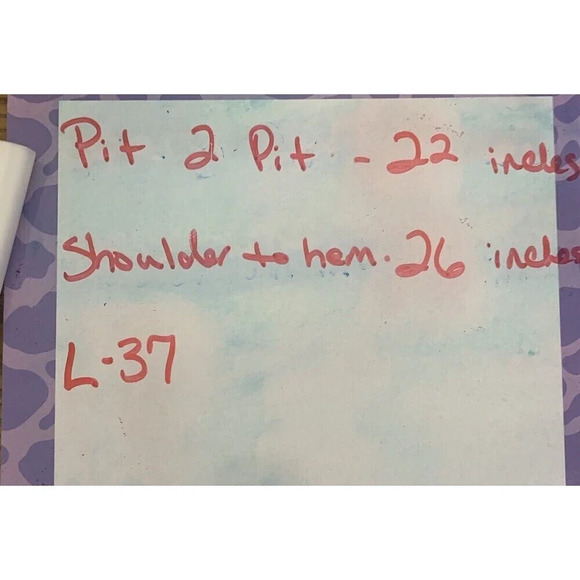 Pit 2 Pit - 22 inches
Shoulder to hem. 26 inches
L-37